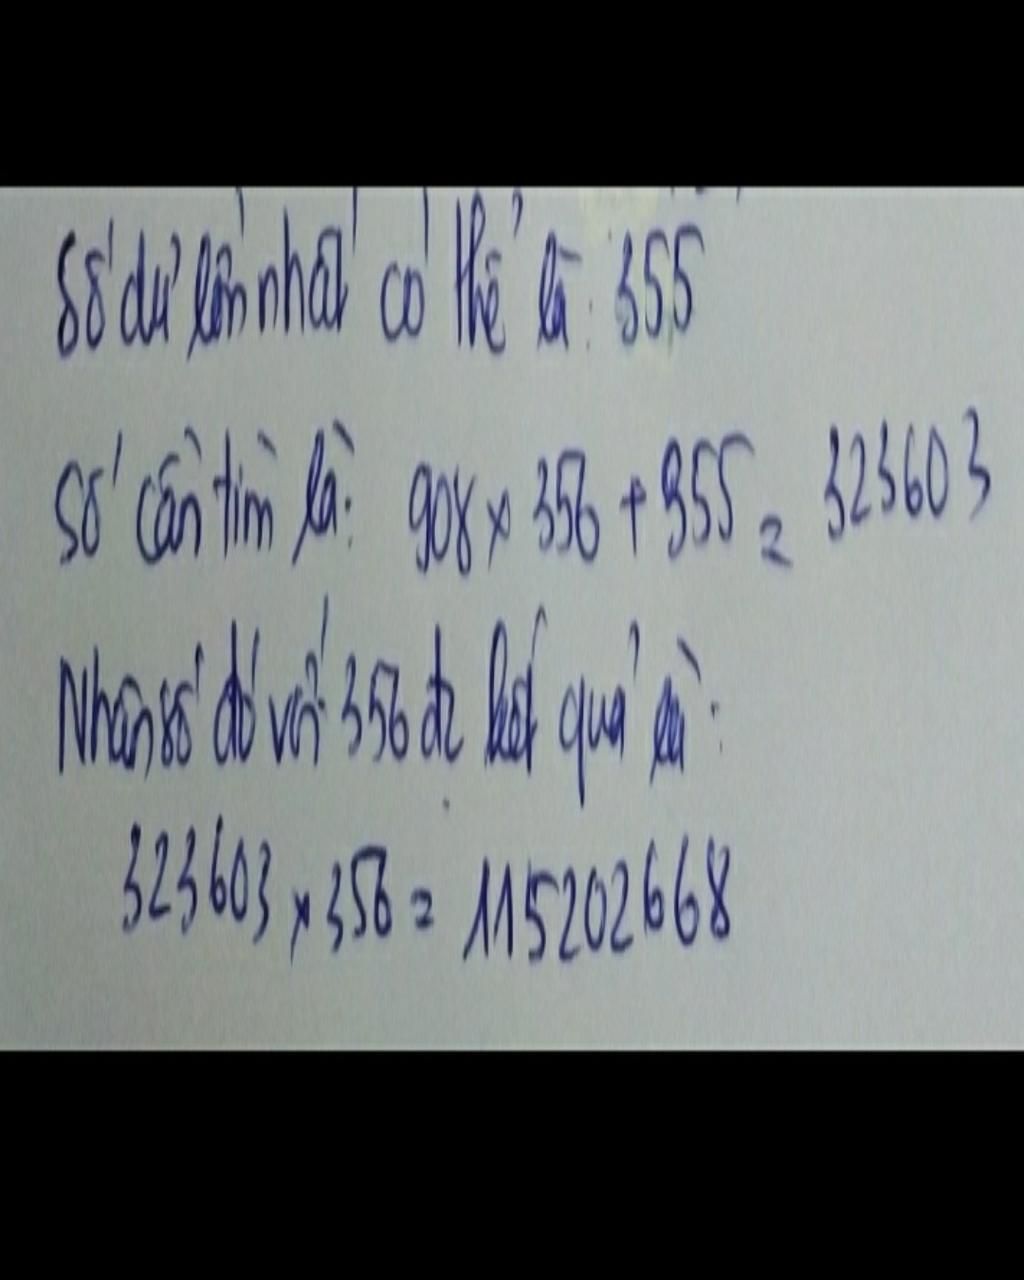 Số dư lớn nhất có thể là: 355
Số cần tìm là: 908 x 356 + 355 = 323603
Nhân số đó với 356 đc kết quả là:
323603 x 356 = 115202668